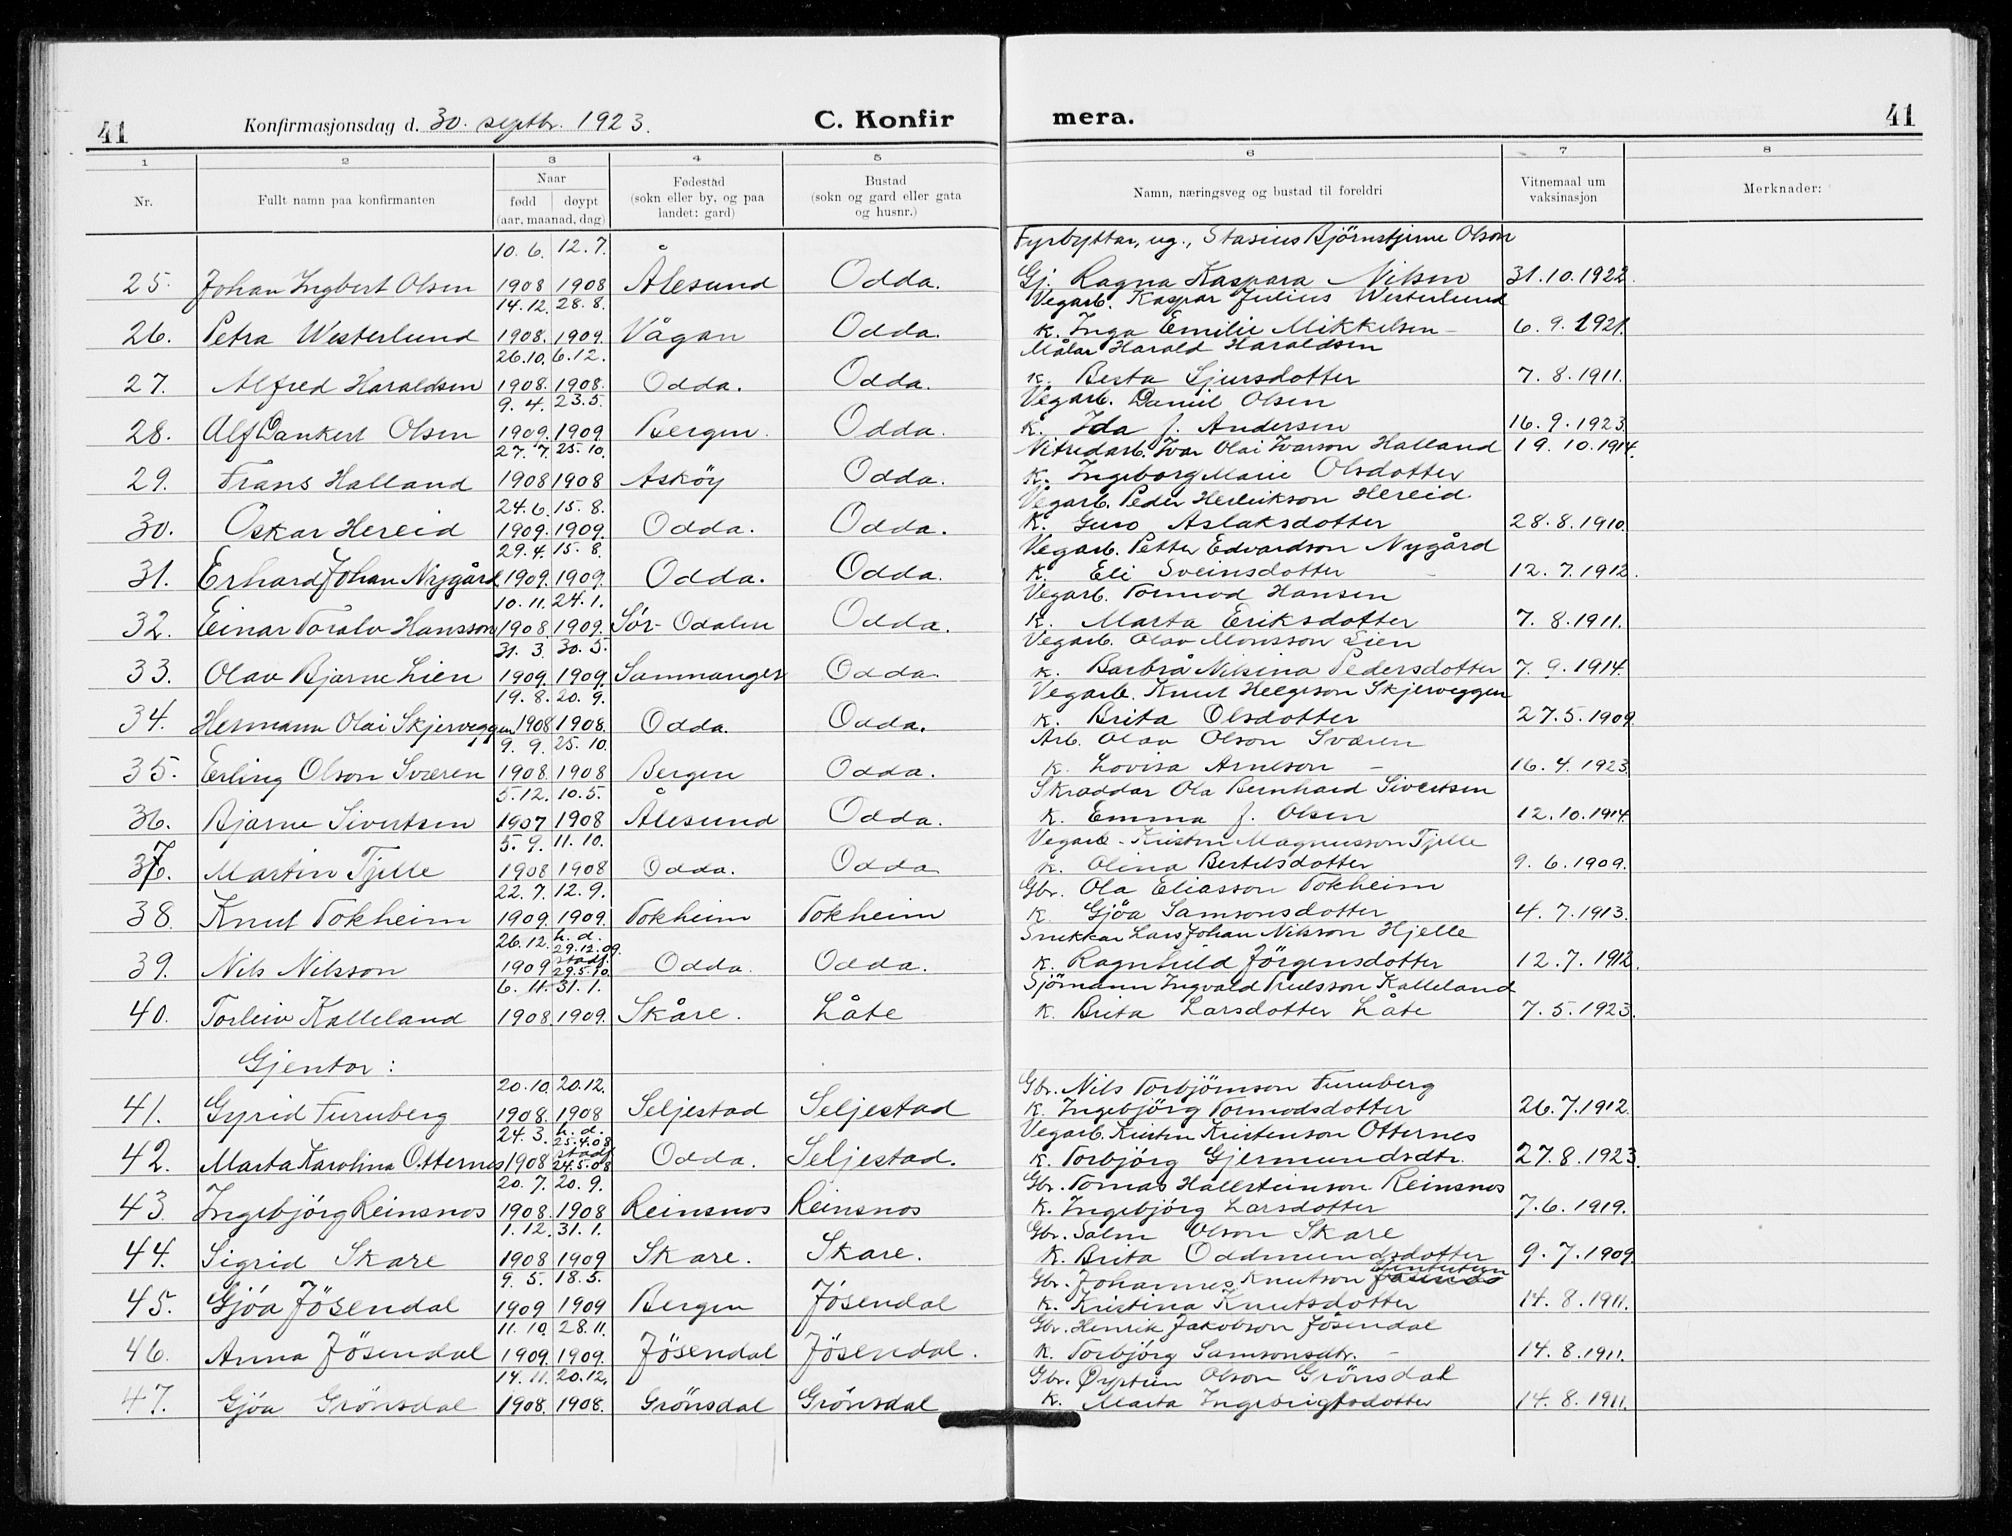 41 Konfirmasjonsdag d. 30. septbr. 1923. C. Konfir mera. 41
1 2 3 4 5 6 7 8
Nr. Fullt namn paa konfirmanten Naar fødd døypt (aar, maanad, dag) Fødestad (sokn eller by, og paa landet: gard) Bustad (sokn og gard eller gata og husnr.) Namn, næringsveg og bustad til foreldri Vitnemaal um vaksinasjon Merknader:
10.6. 12.7. Fyrbyttar, ug., Stasius Björnstjerne Olson
25. Johan Ingbert Olsen 1908 1908 Ålesund Odda. Gj. Ragna Kaspara Nilsen 31.10.1922.
14.12. 28.8. Vegarb. Kaspar Julius Westerlund
26. Petra Westerlund 1908. 1909. Vågan Odda. K. Inga Emilie Mikkelsen – 6.9.1921.
26.10. 6.12. Målar Harald Haraldsen
27. Alfred Haraldsen 1908. 1908. Odda. Odda. K. Berta Sjursdotter 7.8.1911.
9.4. 23.5. Vegarb. Daniel Olsen
28. Alf Dankert Olsen 1909. 1909 Bergen. Odda. K. Ida J. Andersen 16.9.1923
27.7. 25.10. Nitredarb. Ivar Olai Ivarson Halland 19.10.1914.
29. Frans Halland 1908 1908 Asköy Odda. K. Ingeborg Marie Olsdotter
24.6. 15.8. Vegarb. Peder Henrikson Hereid.
30. Oskar Hereid 1909. 1909. Odda. Odda. K. Guro Aslaksdotter 28.8.1910.
29.4. 15.8. Vegarb. Petter Edvardson Nygård
31. Erhard Johan Nygård 1909. 1909. Odda. Odda. K. Eli Sveinsdotter – 12.7.1912.
10.11. 24.1. Vegarb. Tormod Hansen
32. Einar Toralv Hansson 1908. 1909. Sör-Odalen Odda. K. Marta Eriksdotter 7.8.1911.
31.3. 30.5. Vegarb. Olav Monsson Lien
33. Olav Bjarne Lien 1909. 1909. Sammanger Odda. K. Barbrå Nilsina Pedersdotter 7.9.1914.
19.8. 20.9. Vegarb. Knut Helgeson Skjerveggen
34. Hermann Olai Skjerveggen 1908 1908. Odda. Odda. K. Brita Olsdotter 27.5.1909.
9.9. 25.10. Arb. Olav Olson Sværen
35. Erling Olson Sværen 1908. 1908 Bergen Odda. K. Lovisa Arneson – 16.4.1923.
5.12. 10.5. Skraddar Ola Bernhard Sivertsen
36. Bjarne Sivertsen 1907 1908 Ålesund Odda. K. Emma J. Olsen 12.10.1914.
5.9. 11.10. Vegarb. Kristen Magnusson Tjelle
37. Martin Tjelle 1908 1908 Odda. Odda K. Olina Bertelsdotter 9.6.1909.
22.7. 12.9. Gbr. Ola Eliasson Tokheim
38. Knut Tokheim 1909. 1909. Tokheim Tokheim K. Gjöa Samsonsdotter 4.7.1913.
26.12. h.d. 29.12.09. Snikkar Lars Johan Nilsson Hjelle
39. Nils Nilsson 1909 stadf. 29.5.10. Odda. Odda. K. Ragnhild Jörgensdotter 12.7.1912.
6.11. 31.1. Sjömann Ingvald Trulsson Kalleland
40. Torleiv Kalleland 1908. 1909. Skåre. Låte K. Brita Larsdotter Låte 7.5.1923.
Gjentor:
20.10. 20.12. Gbr. Nils Torbjörnson Furuberg
41. Gyrid Furuberg 1908. 1908 Seljestad Seljestad K. Ingebjörg Tormodsdotter 26.7.1912.
24.3. h.d. 25.4.08 Vegarb. Kristen Kristenson Otternes
42. Marta Karolina Otternes 1908 stadf. 24.5.08 Odda. Seljestad. K. Torbjörg Gjermundsdtr. 27.8.1923.
20.7. 20.9. Gbr. Tomas Hallsteinson Reinsnos
43. Ingebjörg Reinsnos 1908. 1908 Reinsnos Reinsnos K. Ingebjörg Larsdotter 7.6.1919.
1.12. 31.1. Gbr. Salm Olson Skare
44. Sigrid Skare 1908 1909 Skare. Skare. K. Brita Oddmundsdotter 9.7.1909.
9.5. 18.5. Gbr. Johannes Knutson
45. Gjöa Jösendal 1909 1909 Bergen Jösendal K. Kristina Knutsdotter 14.8.1911.
11.10. 28.11. Gbr. Henrik Jakobson Jösendal
46. Anna Jösendal 1909. 1909. Jösendal Jösendal. K. Torbjörg Samsonsdtr. – 14.8.1911.
14.11. 20.12. Gbr. Øystein Olson Grönsdal
47. Gjöa Grönsdal 1908. 1908. Grönsdal Grönsdal K. Marta Ingebrigtsdotter 14.8.1911.